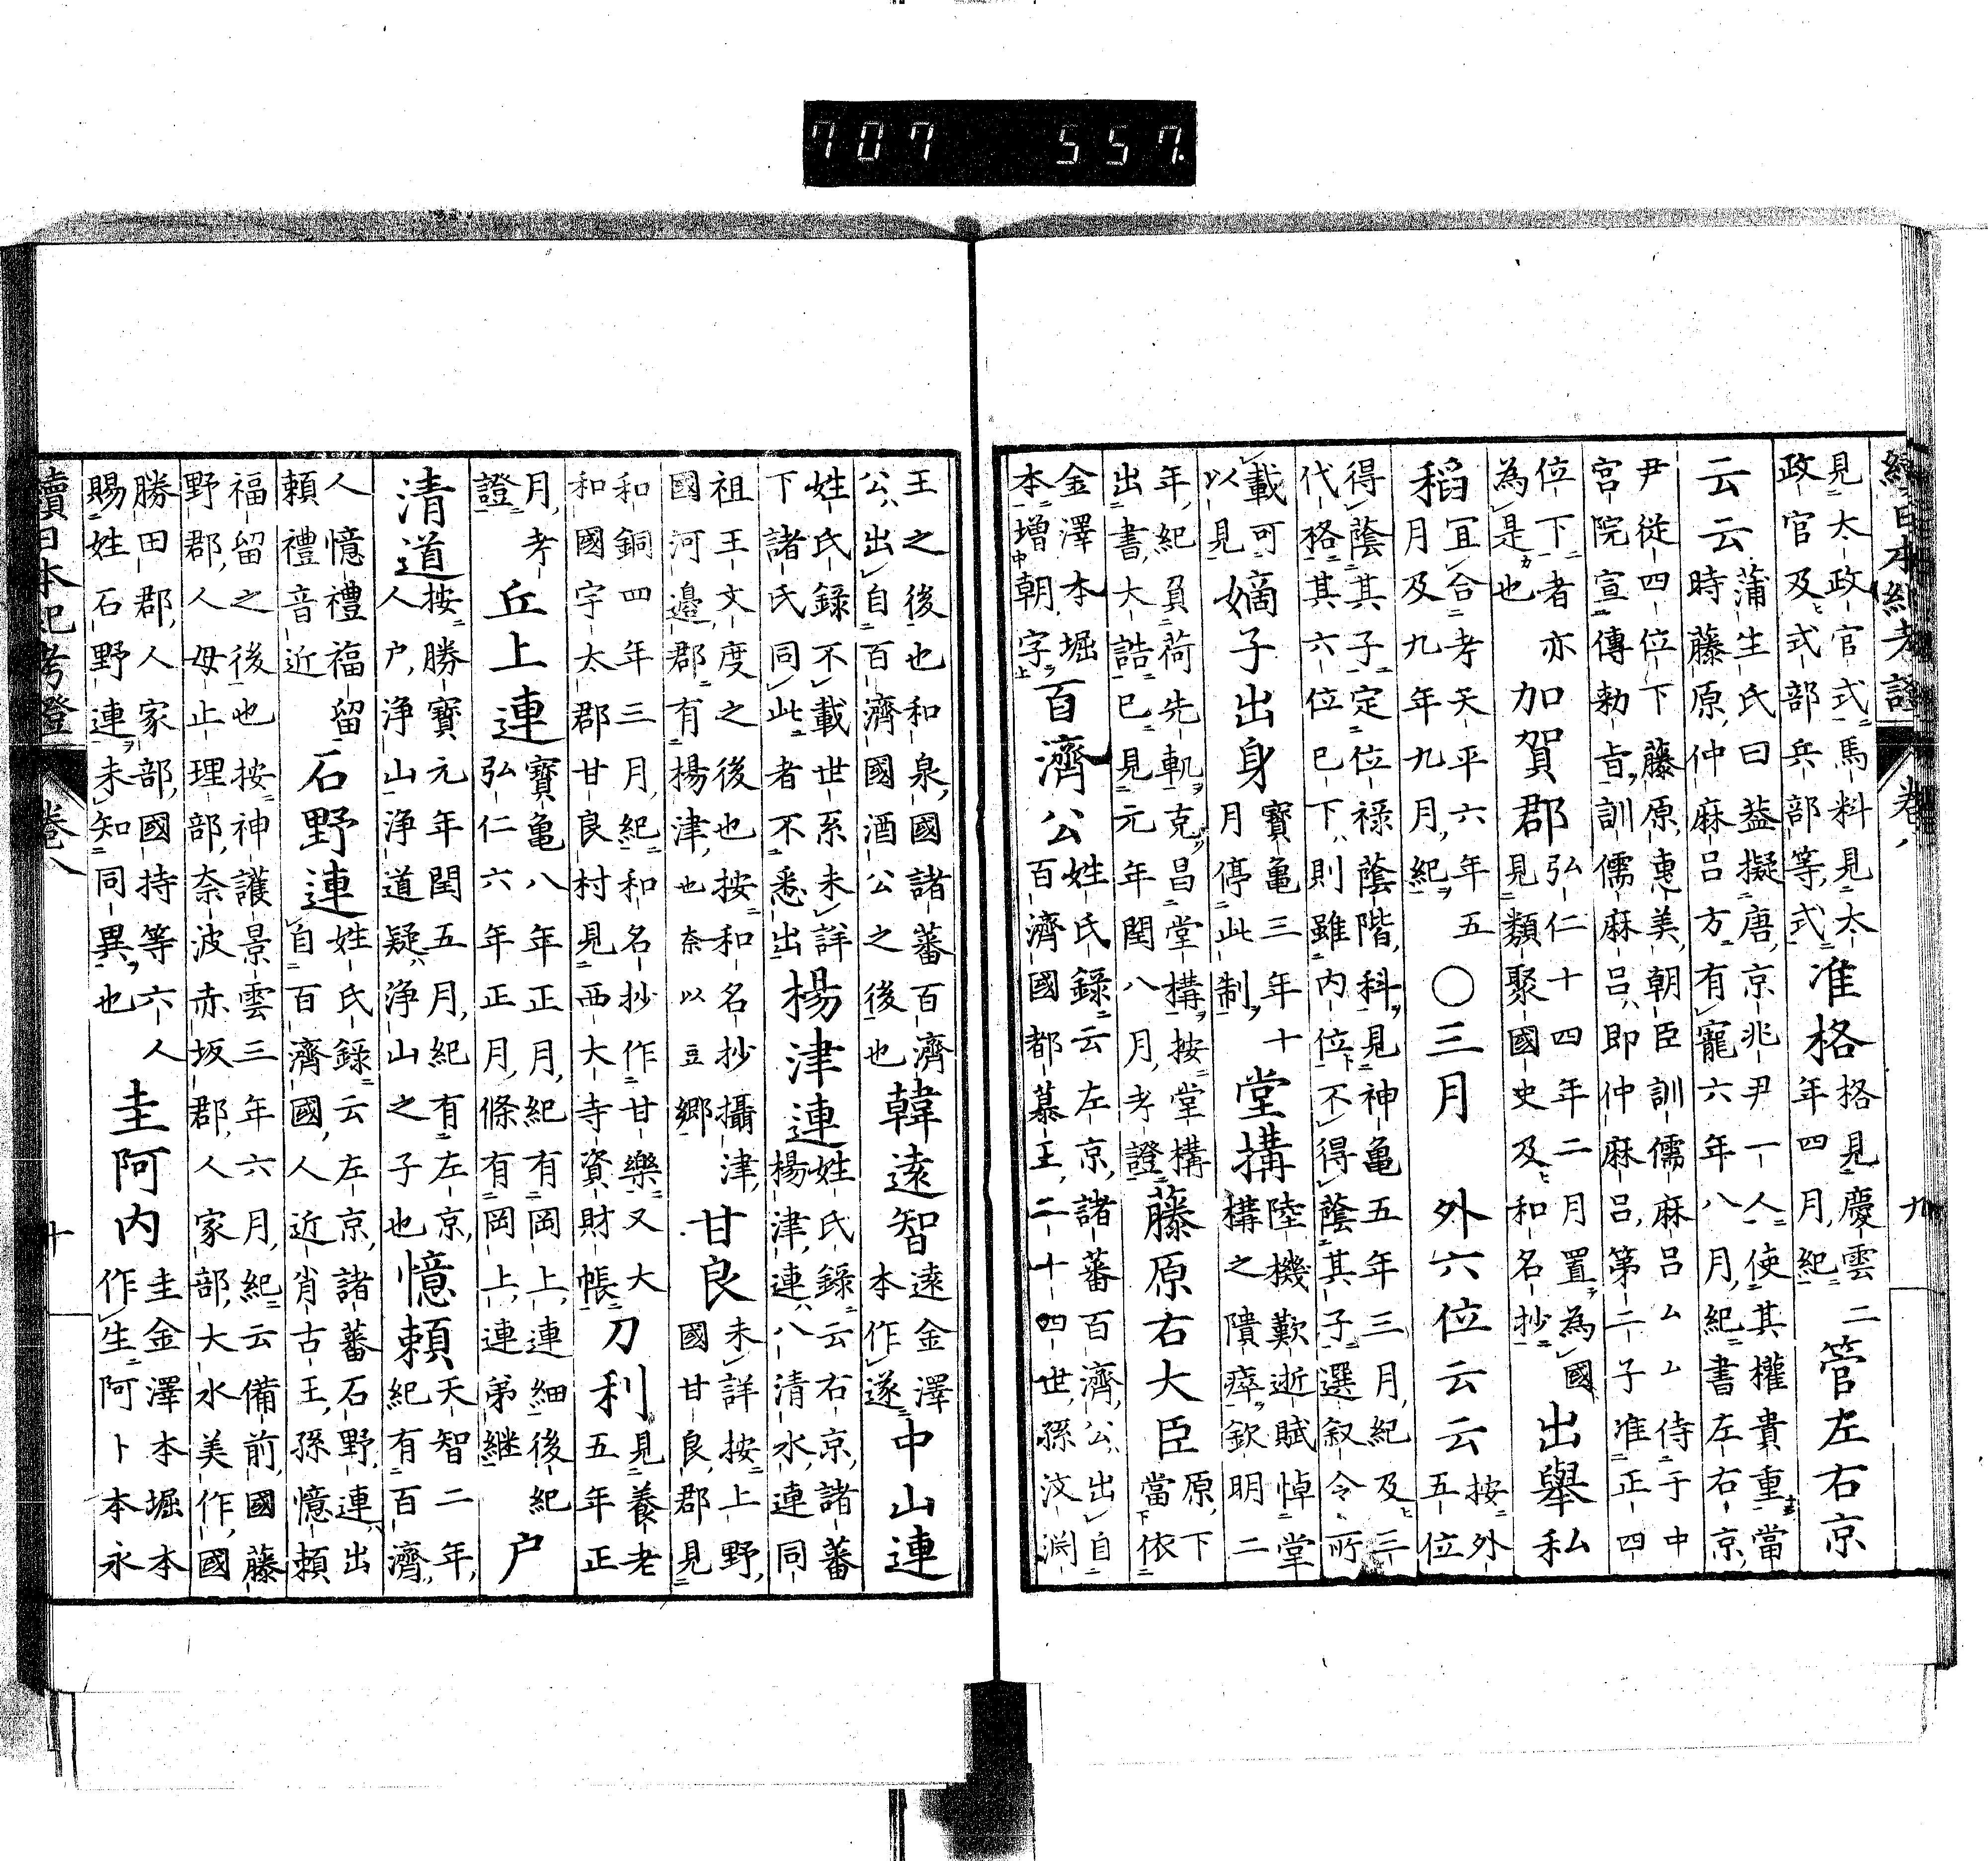 續日本紀考證　卷八　九
見太政官式馬料見太
政官及式部兵部等式
准格
格見慶雲二
年四月紀
管左右京
云云
蒲生氏曰蓋擬唐京兆尹一人使其權貴重當
時藤原仲麻呂方有寵六年八月紀書左右京
尹從四位下藤原惠美朝臣訓儒麻呂ムム侍于中
宮院宣傳勅旨訓儒麻呂即仲麻呂第二子准正四
位下者亦
為是也
加賀郡
弘仁十四年二月置為國
見類聚國史及和名抄
出舉私
稻
冝合考天平六年五
月及九年九月紀
○三月　外六位云云
按外
五位
得蔭其子定位祿蔭階科見神亀五年三月紀及三
代格其六位已下則雖内位不得蔭其子選叙令所
載可
以見
嫡子出身
寶亀三年十
月停此制
堂搆
陸機歎逝賦悼堂
構之隤瘁欽明二
年紀負荷先軌克昌堂構按堂構
出書大誥已見元年閏八月考證
藤原右大臣
原下
當依
金澤本堀
本增朝字
百濟公
姓氏録云左京諸蕃百濟公出自
百濟國都慕王二十四世孫汶淵
王之後也和泉國諸蕃百濟
公出自百濟國酒公之後也
韓遠智
遠金澤
本作遂
中山連
姓氏録不載世系未詳
下諸氏同此者不悉出
楊津連
姓氏録云右京諸蕃
楊津連八清水連同
祖王文度之後也按和名抄攝津
國河邊郡有楊津也奈以豆郷
甘良
未詳按上野
國甘良郡見
和銅四年三月紀和名抄作甘樂又大
和國宇太郡甘良村見西大寺資財帳
刀利
見養老
五年正
月考
證
丘上連
寶亀八年正月紀有岡上連細後紀
弘仁六年正月條有岡上連弟継
户
清道
按勝寶元年閏五月紀有左京
人户淨山淨道疑淨山之子也
憶頼
天智二年
紀有百濟
人憶禮福留
頼禮音近
石野連
姓氏録云左京諸蕃石野連出
自百濟國人近肖古王孫憶頼
福留之後也按神護景雲三年六月紀云備前國藤
野郡人母止理部奈波赤坂郡人家部大水美作國
勝田郡人家部國持等六人
賜姓石野連未知同異也
圭阿内
圭金澤本堀本
作生阿卜本永
續日本紀考證　卷八　十